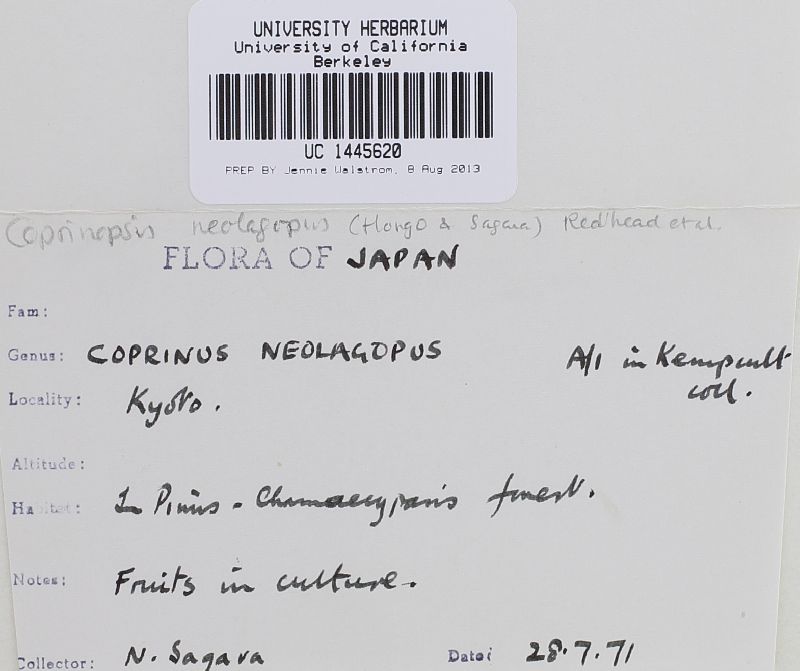 UNIVERSITY HERBARIUM
University of California
Berkeley
UC 1445620
PREP BY Jennie Walstrom, 8 Aug 2013
Coprinopsis neolagopus (Hongo & Sagara) Redhead et al.
FLORA OF JAPAN
Fam:
Genus: COPRINUS NEOLAGOPUS A/1 in Kemp cult
coll.
Locality: Kyoto.
Altitude:
Habitat: In Pinus - Chamaecyparis forest.
Notes: Fruits in culture.
Collector: N. Sagara Date: 28.7.71